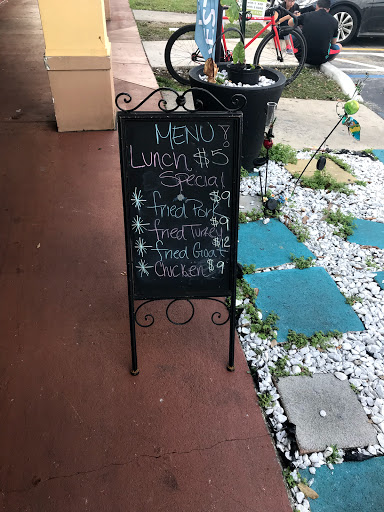 MENU!
Lunch $5
Special
* fried Pork $9
* fried Turkey $9
* fried Goat $12
* Chicken $9